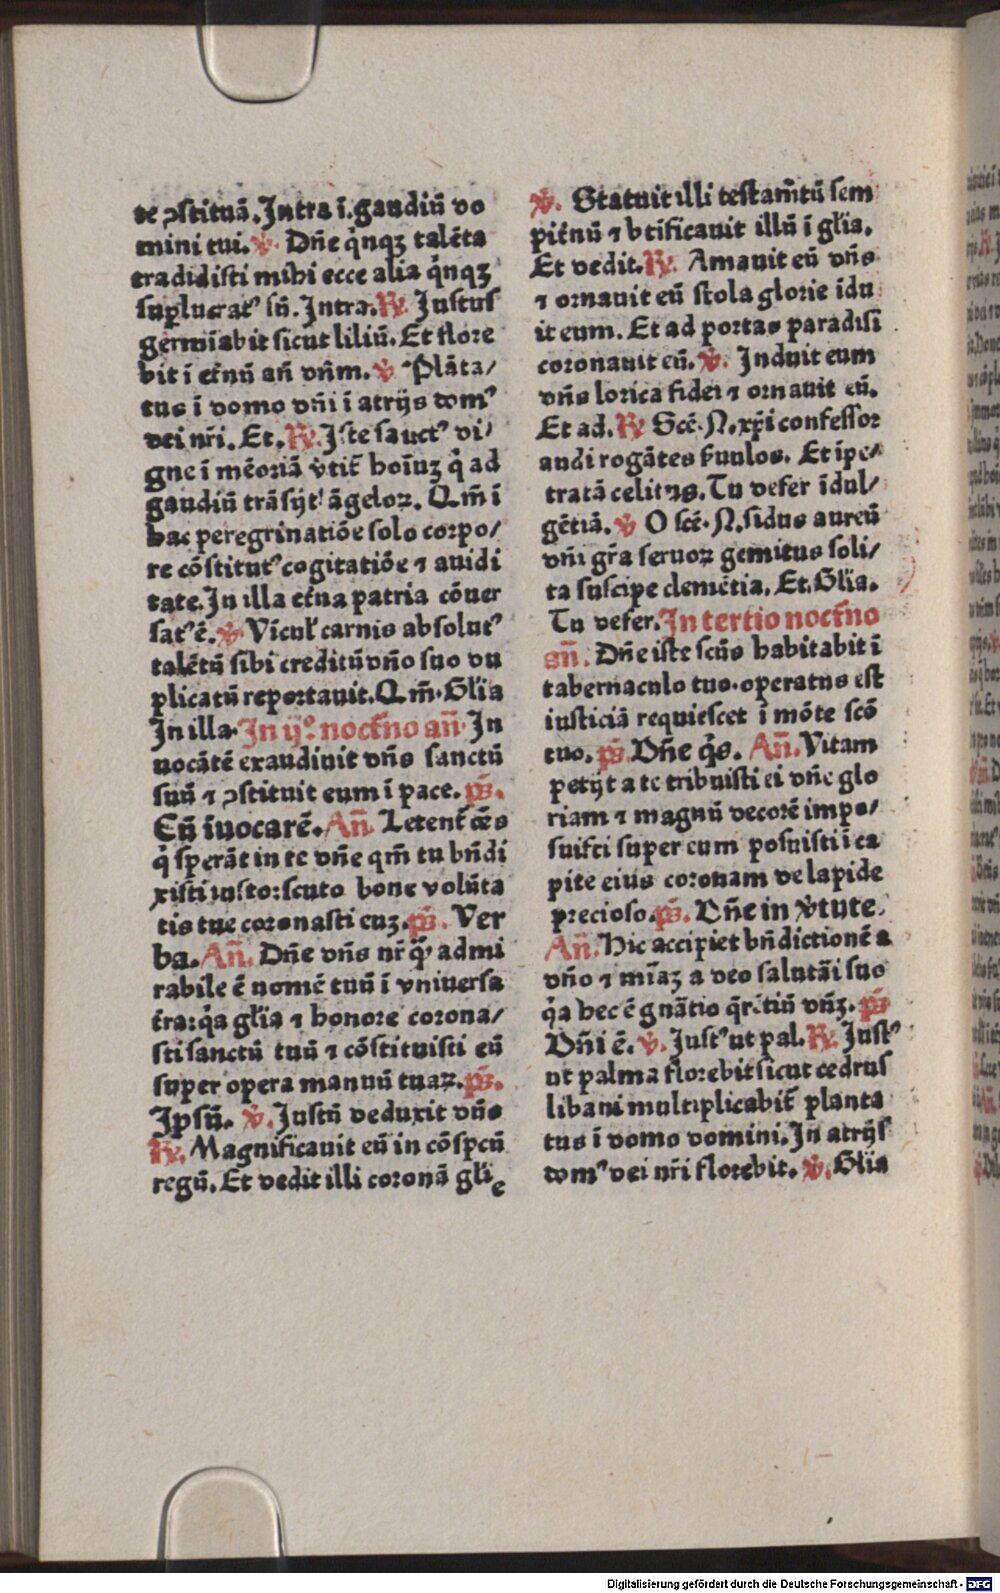 te ꝯstituã. Jntra ī. gaudiũ do
mini tui. ℣. Dñe q̃nqꝫ talẽta
tradidisti mihi ecce alia q̃nqꝫ
suꝑlucratꝰ sũ. Jntra. ℟. Justus
germīabit sicut liliũ. Et flore
bit ī et̃nũ añ dñm. ℣. Plãta/
tus ī domo dñi ī atrijs domꝰ
dei nr̃i. Et. ℟. Jste sanctꝰ di/
gne ī mẽoriã v̾tit̃ hoīuꝫ q̾ ad
gaudiũ trãsijt ãgeloꝝ. Qm̃ ī
hac peregrinatiõe solo corpo/
re cõstitutꝰ cogitatiõe ⁊ auidi
tate. Jn illa et̃na patria cõuer
satꝰ ẽ. ℣. Vicul̾ carnis absolutꝰ
talẽtũ sibi creditũ dño suo du
plicatũ reportauit. Qm̃. Gl̃ia
Jn illa. Jn ijº. noct̃no añ. Jn
uocãtẽ exaudiuit dñs sanctũ
suũ ⁊ ꝯstituit eum ī pace. ps̃.
Cũ īuocarẽ. Añ. Letent̃ oẽs
q̾ sperãt in te dñe qm̃ tu bñdi
xisti iusto: scuto bone volũta
tis tue coronasti euꝫ. ps̃. Ver
ba. Añ. Dñe dñs nr̃ q̃ꝫ admi
rabile ẽ nomẽ tuũ ī vniuersa
t̃ra: q̃a gl̃ia ⁊ honore corona/
sti sanctũ tuũ ⁊ cõstituisti eũ
super opera manuũ tuaꝝ. ps̃.
Jpsũ. ℣. Justũ deduxit dñs
℟. Magnificauit eũ in cõspcũ
regũ. Et dedit illi coronã gl̃ie
℣. Statuit illi testam̃tũ sem
pit̃nũ ⁊ btificauit illũ ī gl̃ia.
Et dedit. ℟. Amauit eũ dñs
⁊ ornauit eũ stola glorie īdu
it eum. Et ad portas paradisi
coronauit eũ. ℣. Jnduit eum
dñs lorica fidei ⁊ ornauit eũ.
Et ad. ℟. Scẽ. N. xp̃i confessor
audi rogãtes f̾uulos. Et īpe/
tratã celitus. Tu defer īdul/
gẽtiã. ℣. O scẽ. N. sidus aureũ
dñi gr̃a seruoꝝ gemitus soli/
ta suscipe clemẽtia. Et. Gl̃ia.
Tu defer. Jn tertio noct̃no
añ. Dñe iste scũs habitabit ī
tabernaculo tuo. operatus est
iusticiã requiescet ī mõte scõ
tuo. ps̃. Dñe q̾s. Añ. Vitam
petijt a te tribuisti ei dñe glo
riam ⁊ magnũ decorẽ impo/
suisti super eum posuisti ī ca
pite eius coronam de lapide
precioso. ps̃. Dñe in v̾tute.
Añ. Hic accipiet bñdictionẽ a
dño ⁊ mĩaꝫ a deo salutãi suo
q̃a hec ẽ gñatio q̃rẽtiũ dñꝫ. ps̃
Dñi ẽ. ℣. Justꝰ ut pal. ℟. Justꝰ
ut palma florebit sicut cedrus
libani multiplicabit̃ planta
tus ī domo domini. Jn atrijs
domꝰ dei nr̃i florebit. ℣. Gl̃ia
Digitalisierung gefördert durch die Deutsche Forschungsgemeinschaft - DFG